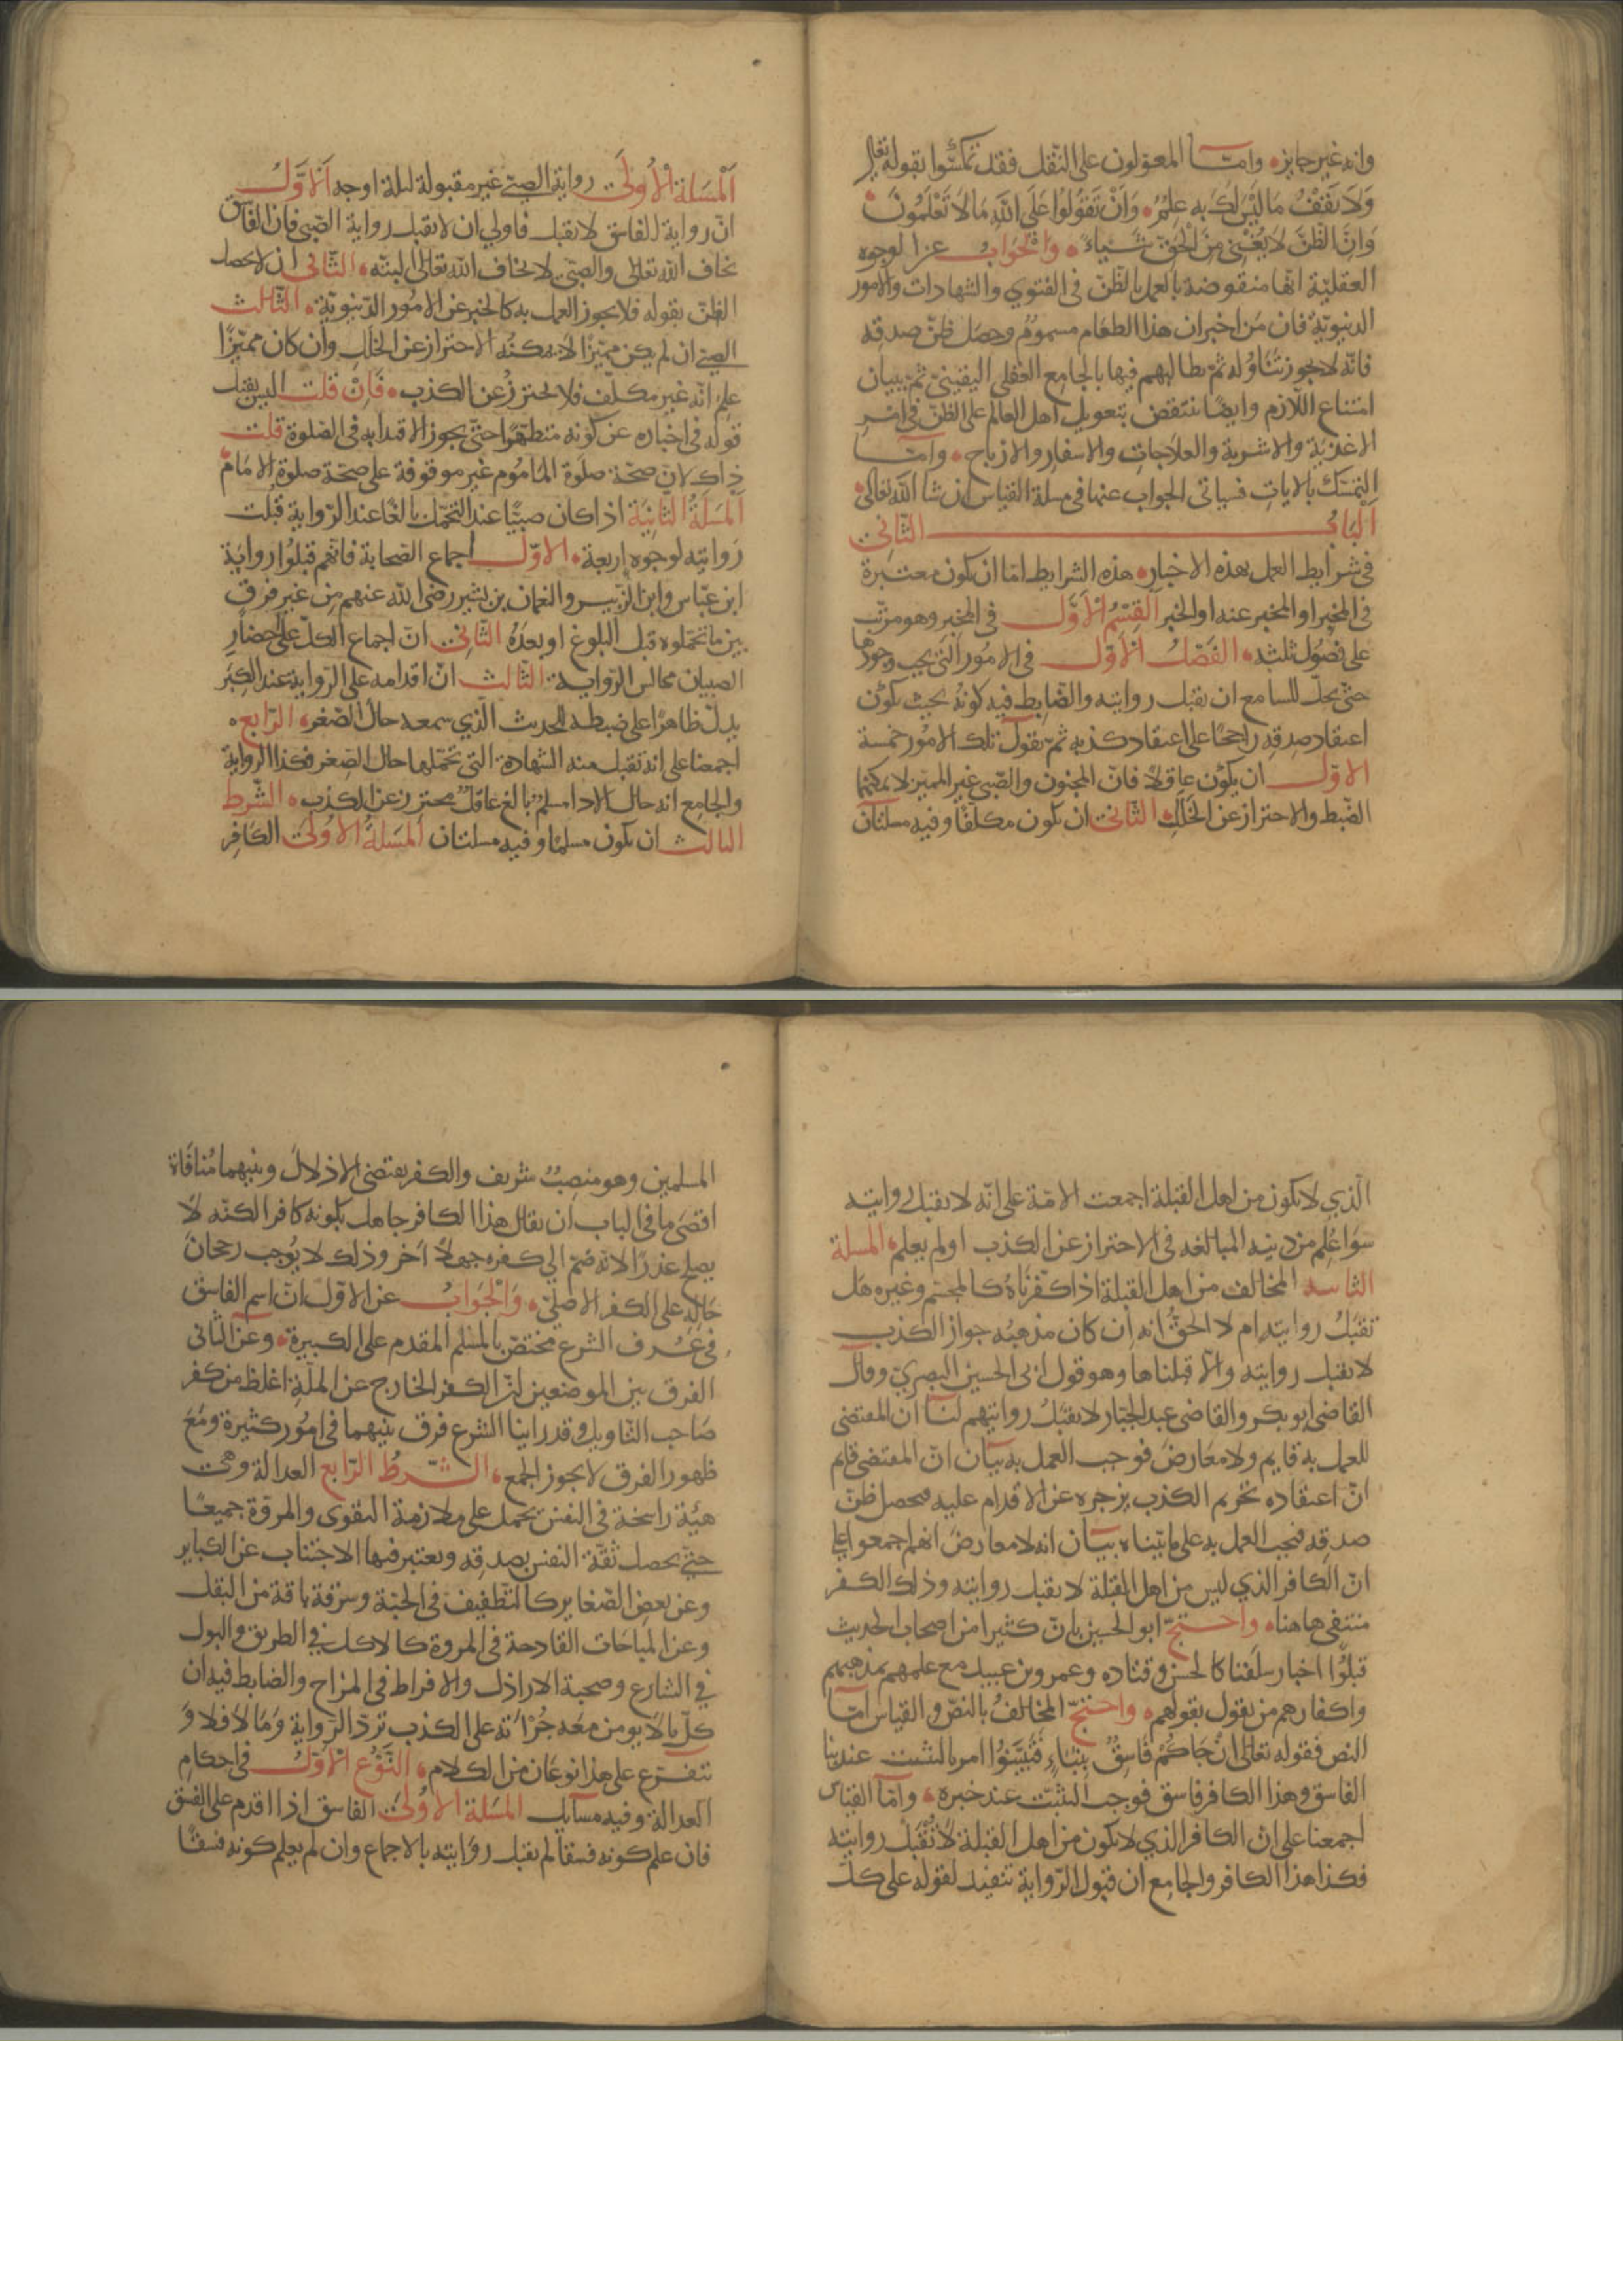 وانه غير جايز وامّا المعوّلون على النّقل فقد تمسّكوا بقوله تعالى
وَلَا تَقْفُ مَا لَيْسَ لَكَ بِهِ عِلْمٌ وَاَنْ تَقُولُوا عَلَى اللهِ مَا لَا تَعْلَمُونَ
وَاِنَّ الظّنَّ لَا يُغْنِي مِنَ الْحَقِّ شَيْئاً وَالْجَوَابُ عن الوجوه
العقليّة انّها منقوضة بالعمل بالظّنّ فى الفتوي والشهادات والامور
الدنيويّة فان مَن اخبر ان هذا الطعَام مسمومٌ وحصَل ظنّ صدقه
فانّه لا يجوز تناوُله ثمّ يطالبهم فيها بالجامع العقلى اليقينىّ ثمّ ببيان
امتناع اللّازم وايضًا ينتقض بتعويل اهل العالم على الظنّ فى امر
الاغذية والاشربة والعلاجات والاسفار والارباح وامّا
التمسّك بالايات فسياتى الجواب عنها فى مسلة القياس ان شا الله تعالى
اَلْبَابُ الثّانِى
فى شرايط العمل بهذه الاخبار هذه الشرايط امّا ان يكون معتبرة
فى المخبر او المخبر عنه او الخبر اَلْقِسْمُ الْاَوَّل فى المخبر وهو مرتّب
على فصُول ثلثه الفَصْلُ الْاَوَّل فى الامُور الّتى يجب وجودها
حتى يحلّ للسامع ان يقبل روايته والضّابط فيه كونُه بحيث يكوُن
اعتقاد صدقه راجحًا على اعتقاد كذبه ثمّ نقول تلك الامُور خمسة
الاوّل ان يكوُن عاقلًا فانّ المجنون والصّبى غير المميّز لا يمكنهما
الضّبط والاحتراز عن الخلل الثّانى ان يكون مكلّفًا وفيه مسلتان
اَلْمَسَلة الْاُولَى رواية الصبىّ غير مقبولة لثلثة اوجه اَلْاَوَّلُ
انّ رواية الفاسق لا تقبل فاولي ان لا تقبل رواية الصّبى فان الفاسق
يخاف الله تعالى والصبىّ لا يخاف الله تعالى البتّه الثّانى ان لا يحصل
الظنّ بقوله فلا يجوز العمل به كالخبر عن الامُور الدّنيويّة الثّالث
الصبىّ ان لم يكن مميّزًا لا يمكنُه الاحتراز عن الخلل وان كان مميّزًا
علم انّه غير مكلّف فلا يحترزُ عن الكذب فَاِنْ قلت اليس يقبل
قولُه فى اخباره عن كونه متطهّرًا حتّى يجوز الاقتدا به فى الصّلوة قلت
ذاك لانّ صحّة صلوَة المامُوم غير موقوفة على صحّة صلوة الامَام
اَلْمَسَلَةُ الثَّانِيَة اذا كان صبيًا عند التحمّل بالغًا عند الرّواية قبلت
رَوايته لوجوه اربعة الاوّل اجماع الصّحابة فانّهم قبلُوا روايَة
ابن عبّاس وابن الزّبير والنعمان بن بشير رضى الله عنهم مِن غير فرق
بين ما تحمّلوه قبل البلوغ او بعدَهُ الثّانِى انّ اجماع الكلّ على احضار
الصبيان مجالس الرّواية الثّالث انّ اقدامه على الرّواية عند الكِبَر
يدلّ ظاهرًا على ضبطه للحديث الّذي سمعه حالَ الصّغر الرّابع
اجمعنا على انه تقبل منه الشهادة التى تحمّلها حال الصّغر فكذا الرواية
والجامع انه حال الادا مسلمٌ بالغ عاقلٌ محترز عن الكذب الشّرط
الثالث ان يكون مسلمًا وفيه مسلتان اَلْمَسَلَةُ الاُولَى الكَافِر
الّذي لا يكون من اهل القبلة اجمعت الامّة على انّه لا يقبل روايته
سَوا عُلم من دينه المبالغه فى الاحتراز عن الكذب او لم يعلم المسلة
الثانيه المخالف من اهل القبلة اذا كفّرناهُ كالمجسّم وغيره هَل
تقبَلُ روايته ام لا الحقُّ انه ان كان مذهبُه جواز الكذب
لا يقبل روايته والّا قبلناها وهو قول ابى الحسين البصري وقال
القاضى ابو بكر والقاضى عبد الجبّار لا يقبَلُ روايتهم لنَا ان المقتضى
للعمل به قايم ولا معَارضَ فوجب العمل به بيَان انّ المقتضى قايم
انّ اعتقاده تحريم الكذب يزجره عن الاقدام عليه فيحصل ظنّ
صدقه فيجب العمل به على ما بيّناه بيَان انه لا معارضَ انهم اجمعوا على
انّ الكافر الذي ليس من اهل القبلة لا يقبل روايته وذلك الكفر
منتفى هاهنا واحتجّ ابو الحسين بانّ كثيرا من اصحاب الحديث
قبلُوا اخبار سلفنا كالحسن وقتاده وعمرو بن عبيد مع علمهم بمذهبهم
واكفارهم من يقول بقولهم واحتجّ المخالفُ بالنصّ والقياس امّا
النص فقوله تعالى اِنْ جَاكُمْ فَاسِقٌ بِنَبَاٍ فَتَبَيَّنُوا امر بالتثبت عند نبا
الفاسق وهذا الكافر فاسق فوجب التثبّت عند خبره وامّا القياس
اجمعنا على ان الكافر الذي لا يكون من اهل القبلة لا تُقْبَلُ روايته
فكذا هذا الكافر والجامع ان قبول الرّواية تنفيذ لقوله على كلّ
المسلمين وهو منصِبٌ شريف والكفر يقتضى الاذلال وبينهما مُنافَاة
اقصَى ما فى الباب ان يقال هذا الكافر جاهل بكونه كافرا لكنّه لا
يصلح عذرًا لانّه ضمّ الي كفره جهلًا اَخر وذلك لا يُوجب رجحانَ
حَاله على الكفر الاصلىّ وَالْجَوَابُ عن الاوّل انّ اسم الفاسق
فى عُرف الشرع مختصّ بالمسلم المقدم على الكبيرة وعن الثّانى
الفرق بين الموضعين انّ الكفر الخارج عن الملّة اغلظ من كفر
صَاحب التّاويل وقد راينا الشرع فرق بينهما فى امُور كثيرة ومَعَ
ظهور الفرق لا يجوز الجمع الشّرطُ الرّابع العدالة وهى
هيئة راسخة فى النفس تحمل على ملازمة التقوى والمروّة جميعًا
حتّى يحصل ثقَة النفس بصدقه ويعتبر فيها الاجتناب عن الكباير
وعن بعض الصّغاير كالتّطفيف فى الحبّة وسرقة باقة من البقل
وعن المباحَات القادحة فى المروة كالاكل في الطريق والبول
في الشارع وصحبة الاراذل والافراط فى المزاح والضّابط فيه ان
كلّ ما لا يومن معَه جُرْاَته على الكذب تردّ الرّواية وَمَا لا فلا وَ
يتفرّع على هذا نوعَان من الكلام النَّوْع الْاَوَّلُ فى احكام
العدالة وفيه مسَايل المسَلة الْاُولَى الفاسق اذا اقدم على الفسق
فان علم كونه فسقا لم تقبل رَوَايته بالاجماع وان لم يعلم كونه فسقًا